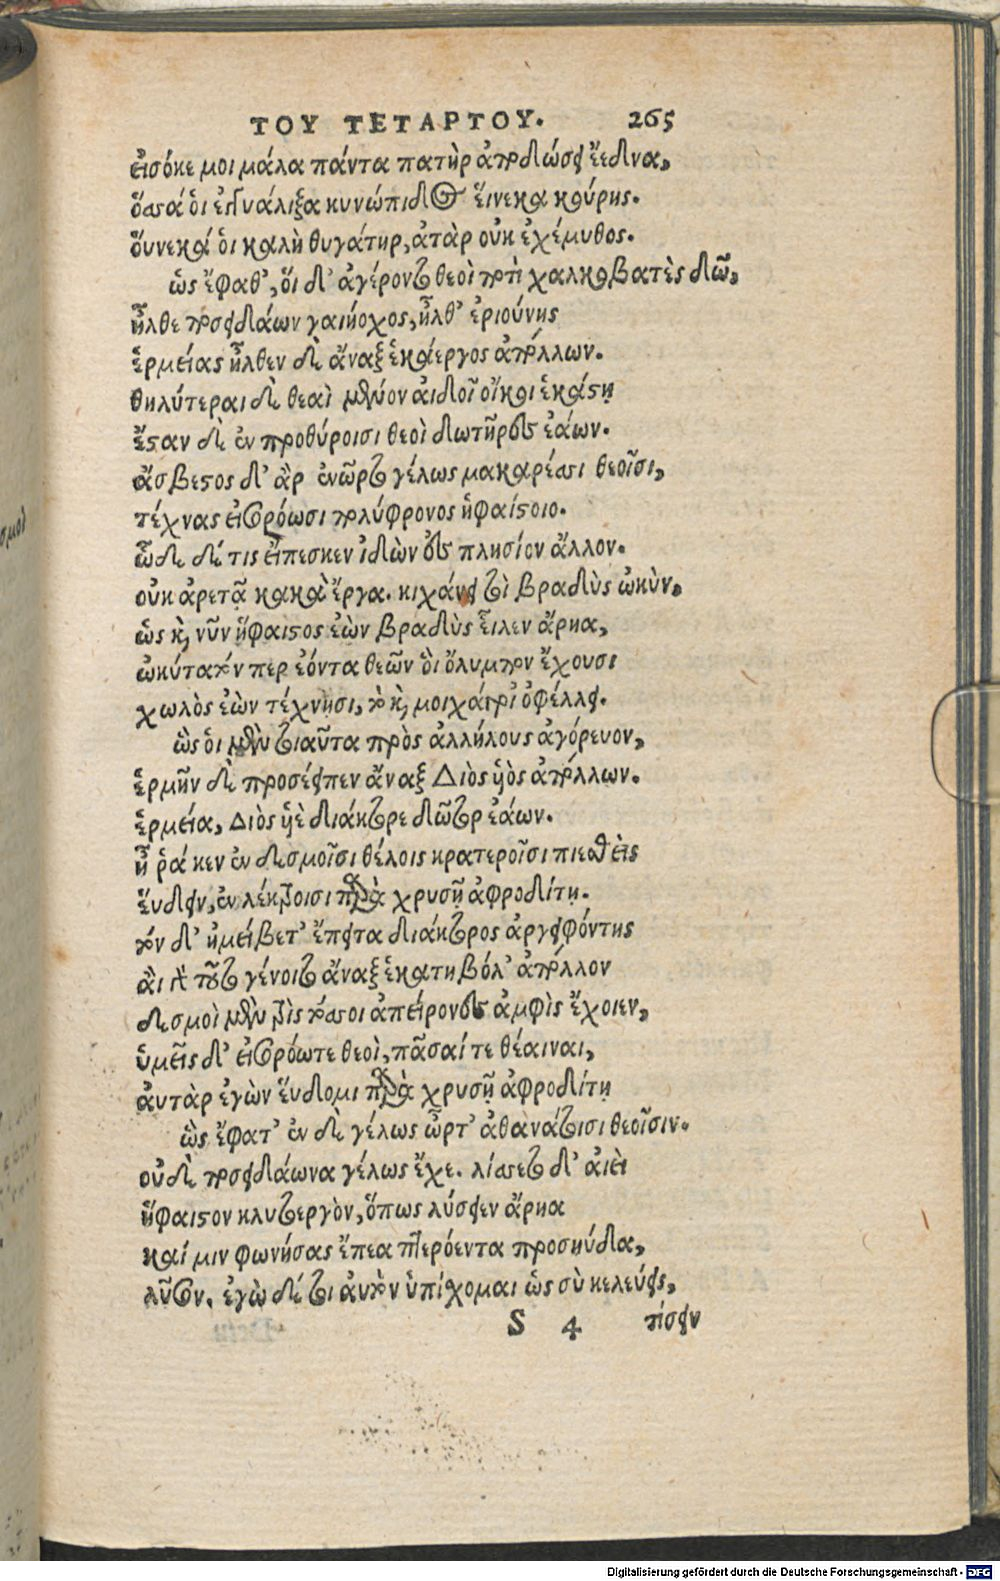 ΤΟΥ ΤΕΤΑΡΤΟΥ. 265
εἰσόκε μοι μάλα πάντα πατὴρ ἀποδώσει ἔεδνα,
ὅσσά οἱ ἐγγυάλιξα κυνώπιδος εἵνεκα κούρης.
οὕνεκά οἱ καλὴ θυγάτηρ, ἀτὰρ οὐκ ἐχέμυθος.
ὣς ἔφαθ', οἱ δ' ἀγέροντο θεοὶ ποτὶ χαλκοβατὲς δῶ,
ἦλθε ποσειδάων γαιήοχος, ἦλθ' ἐριούνης
ἑρμείας ἦλθεν δὲ ἄναξ ἑκάεργος ἀπόλλων.
θηλύτεραι δὲ θεαὶ μένον αἰδοῖ οἴκοι ἑκάστη
ἔσταν δὲ ἐν προθύροισι θεοὶ δωτῆρες ἐάων.
ἄσβεστος δ' ἂρ ἐνῶρτο γέλως μακάρεσσι θεοῖσι,
τέχνας εἰσορόωσι πολύφρονος ἡφαίστοιο.
ὧδε δέ τις εἴπεσκεν ἰδὼν ἐς πλησίον ἄλλον.
οὐκ ἀρετᾷ κακὰ ἔργα. κιχάνει τοὶ βραδὺς ὠκὺν,
ὡς καὶ νῦν ἥφαιστος ἐὼν βραδὺς εἷλεν ἄρηα,
ὠκύτατόν περ ἐόντα θεῶν οἳ ὄλυμπον ἔχουσι
χωλὸς ἐὼν τέχνῃσι, τὸ καὶ μοιχάγρι' ὀφέλλει.
ὣς οἱ μὲν τοιαῦτα πρὸς ἀλλήλους ἀγόρευον,
ἑρμῆν δὲ προσέειπεν ἄναξ Διὸς υἱὸς ἀπόλλων.
ἑρμεία, Διὸς υἱὲ διάκτορε δῶτορ ἐάων.
ἦ ῥά κεν ἐν δεσμοῖσι θέλοις κρατεροῖσι πιεσθεὶς
εὕδειν, ἐν λέκτροισι παρὰ χρυσῇ ἀφροδίτῃ.
τὸν δ' ἠμείβετ' ἔπειτα διάκτορος ἀργειφόντης
αἲ γὰρ τοῦτο γένοιτο ἄναξ ἑκατηβόλ' ἀπόλλον
δεσμοὶ μὲν τρὶς τόσσοι ἀπείρονες ἀμφὶς ἔχοιεν,
ὑμεῖς δ' εἰσορόωτε θεοὶ, πᾶσαί τε θέαιναι,
αὐτὰρ ἐγὼν εὕδοιμι παρὰ χρυσῇ ἀφροδίτῃ
ὣς ἔφατ' ἐν δὲ γέλως ὦρτ' ἀθανάτοισι θεοῖσιν.
οὐδὲ ποσειδάωνα γέλως ἔχε. λίσσετο δ' αἰεὶ
ἥφαιστον κλυτοεργὸν, ὅπως λύσειεν ἄρηα
καί μιν φωνήσας ἔπεα πτερόεντα προσηύδα,
λῦσον. ἐγὼ δέ τοι αὐτὸν ὑπίχομαι ὡς σὺ κελεύεις,
S 4 τίσειν
Digitalisierung gefördert durch die Deutsche Forschungsgemeinschaft - DFG